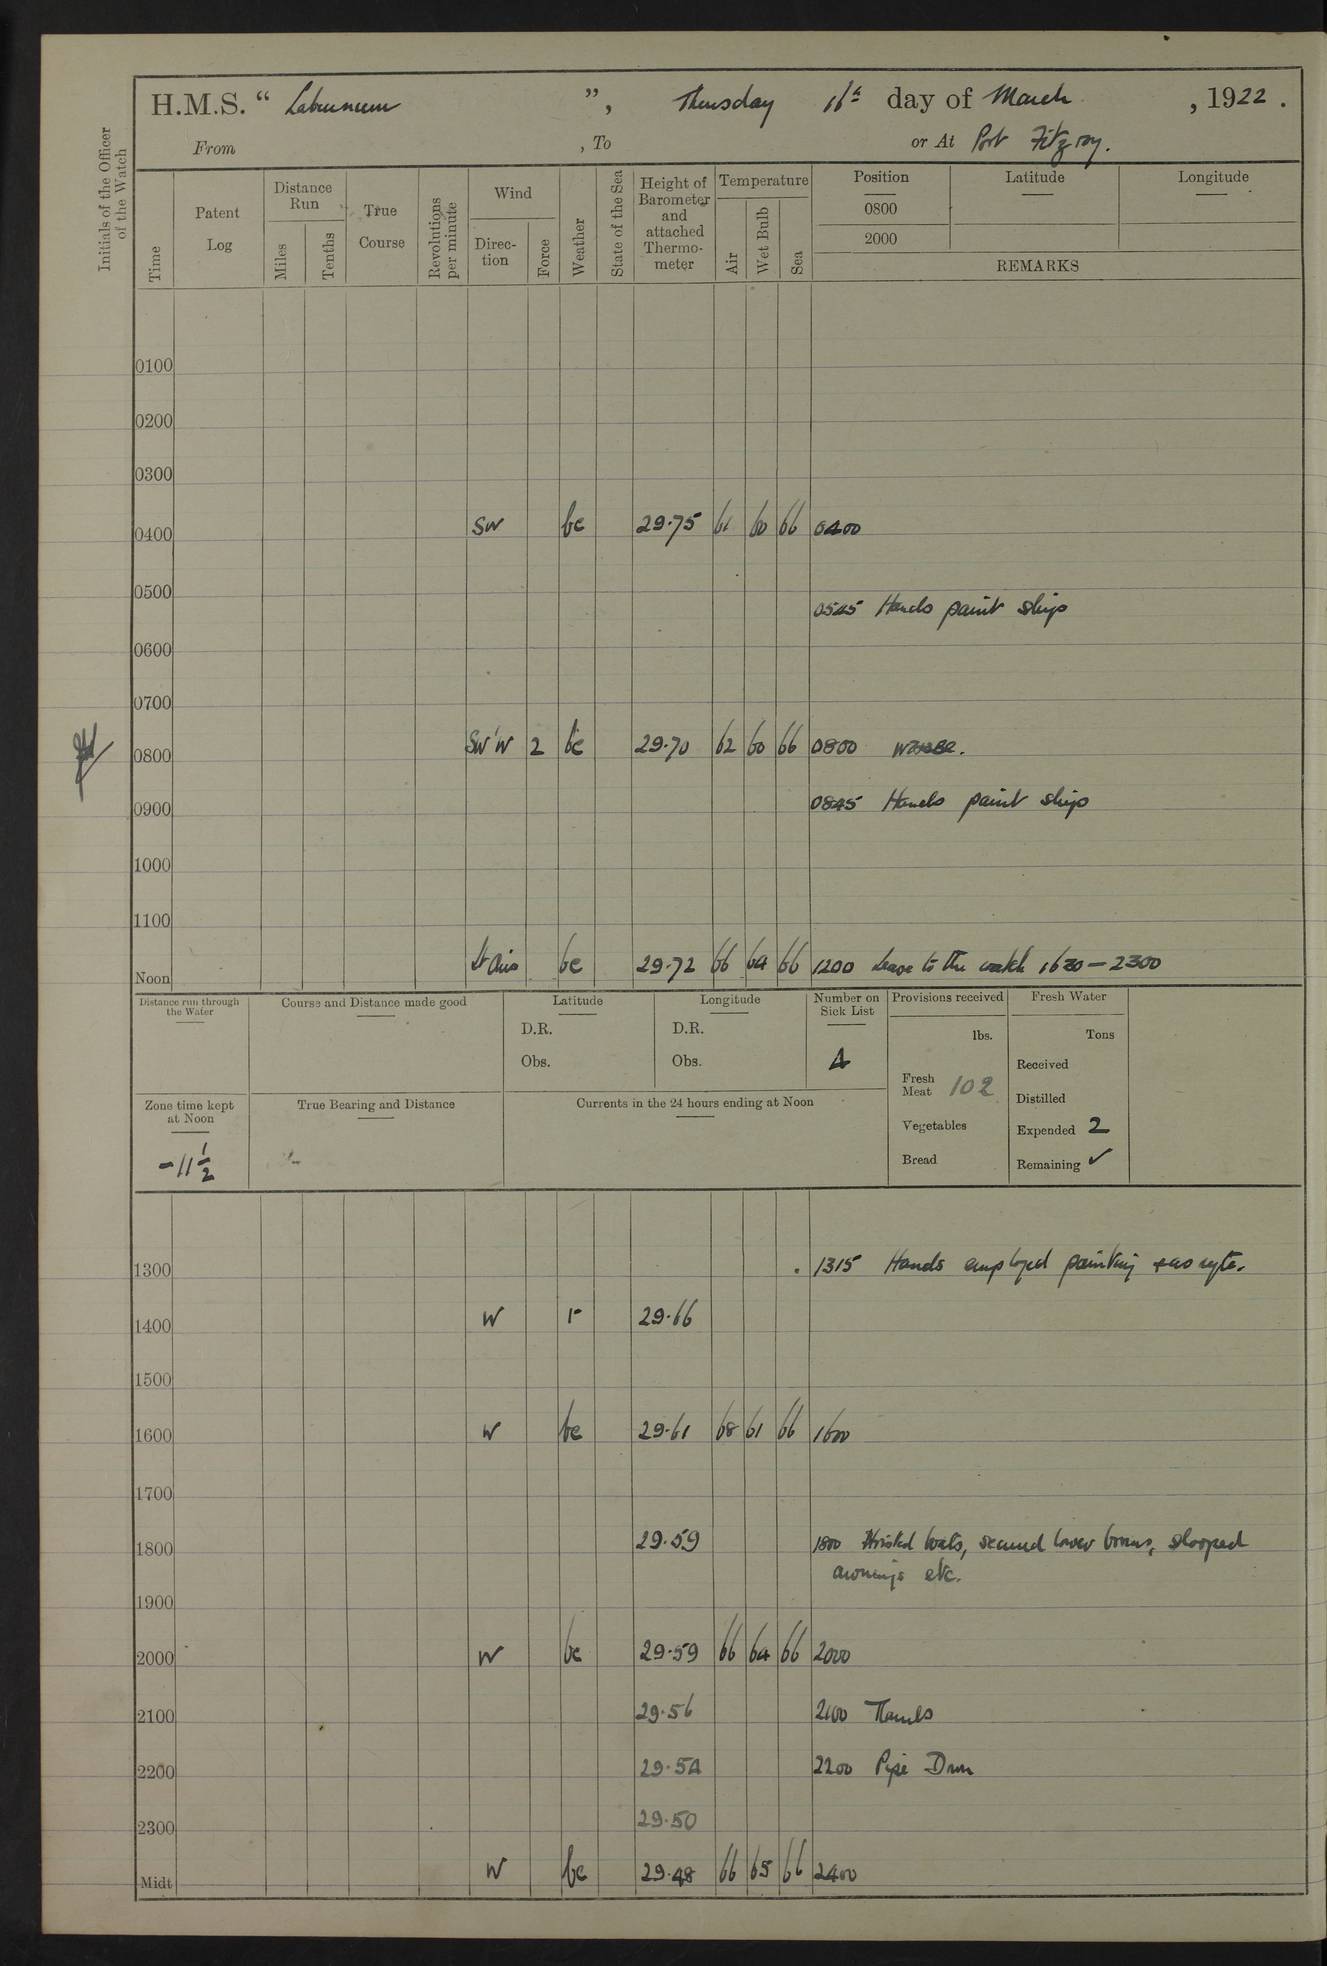 H.M.S. “ Laburnum ”, Thursday 16th day of March , 1922 .
From , To or At Port Fitzroy.
Initials of the Officer of the Watch
Time
Patent Log
Distance Run
Miles
Tenths
True Course
Revolutions per minute
Wind
Direc- tion
Force
Weather
State of the Sea
Height of Barometer and attached Thermo- meter
Temperature
Air
Wet Bulb
Sea
Position
0800
2000
Latitude
Longitude
REMARKS
0100
0200
0300
0400 SW bc 29.75 61 60 66 0400
0500
0545 Hands paint ship
0600
0700
0800 SW'W 2 bc 29.70 62 60 66 0800
0845 Hands paint ship
0900
1000
1100
Noon Lt Airs bc 29.72 66 64 66 1200 Leave to the watch 1630 — 2300
Distance run through the Water
Course and Distance made good
Latitude
D.R.
Obs.
Longitude
D.R.
Obs.
Number on Sick List
4
Provisions received
lbs.
Fresh Meat 102
Vegetables
Bread
Fresh Water
Tons
Received
Distilled
Expended 2
Remaining ✓
Zone time kept at Noon
-11 1/2
True Bearing and Distance
Currents in the 24 hours ending at Noon
1300
1315 Hands employed painting
1400 W r 29.66
1500
1600 W bc 29.61 68 61 66 1600
1700
1800 29.59 1800 Hoisted boats, secured lower booms, slooped
awnings etc.
1900
2000 W bc 29.59 66 64 66 2000
2100 29.56 2100 Rounds
2200 29.54 2200 Pipe Down
2300 29.50
Midt W bc 29.48 66 65 66 2400